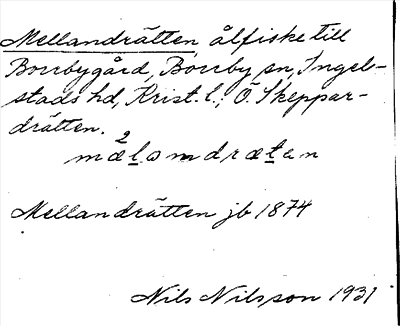 Mellandrätten, ålfiske till
Borrbygård, Borrby sn, Ingel-
stads hd, Krist. l.; Ö. Skeppar-
drätten.
2
mælamdrætan
Mellandrätten jb 1874
Nils Nilsson 1931